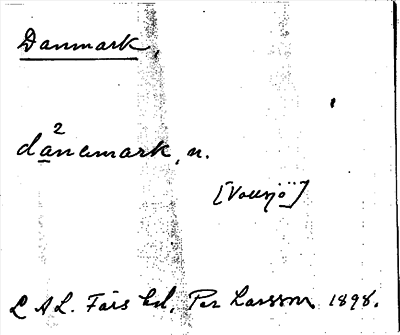 Danmark,
2
danemark, n.
[Vollsjö]
L A L. Färs hd, Per Larsson, 1898.